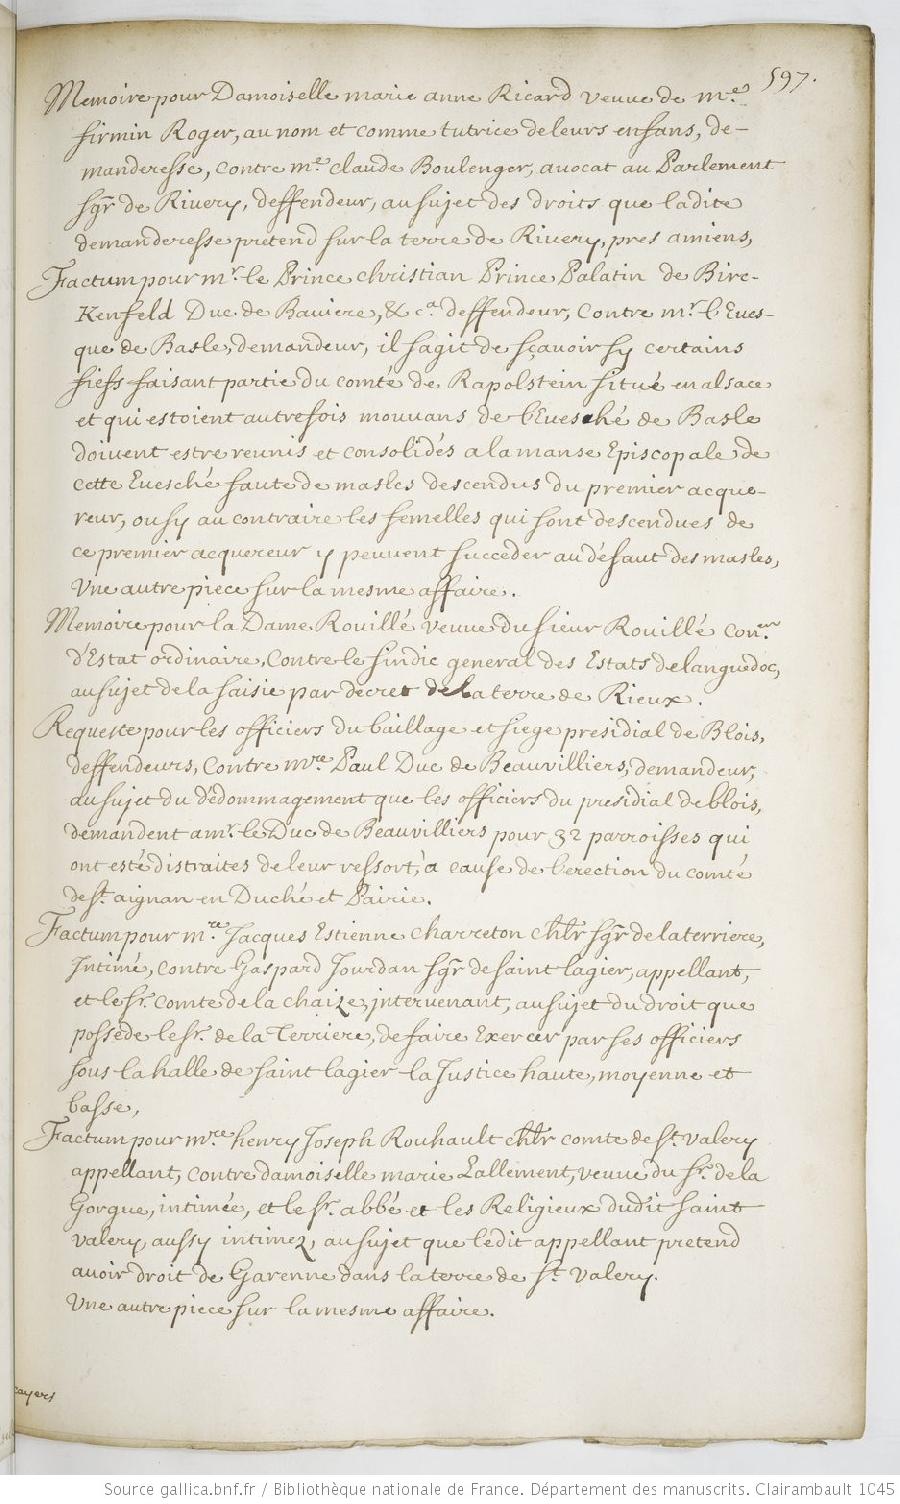 597.
Memoire pour Damoiselle marie anne Ricard veuve de m.e
firmin Roger, au nom et comme tutrice de leurs enfans, de-
manderesse, contre m.e claude Boulenger, avocat au Parlement
sgr de Rivery, deffendeur, au sujet des droits que ladite
demanderesse pretend sur la terre de Rivery, pres amiens,
Factum pour m.r le Prince christian Prince Palatin de Birc-
Kenfeld Duc de Baviere, &c.a deffendeur, contre m.r l'Eves-
que de Basle, demandeur, il s'agit de sçavoir sy certains
fiefs faisant partie du comté de Rapolstein situé en alsace
et qui estoient autrefois mouvans de l'Evesché de Basle
doivent estre reunis et consolidés a la manse Episcopale de
cette Evesché faute de masles descendus du premier acque-
reur, ou sy au contraire les femelles qui sont descendues de
ce premier acquereur y peuvent succeder au défaut des masles,
Vne autre piece sur la mesme affaire.
Memoire pour la Dame Rouillé veuve du sieur Rouillé con.er
d'Estat ordinaire, Contre le sindic general des Estats de languedoc,
au sujet de la saisie par decret de la terre de Rieux.
Requeste pour les officiers du baillage et siege presidial de Blois,
deffendeurs, Contre m.re Paul Duc de Beauvilliers, demandeur,
au sujet du dédommagement que les officiers du presidial de blois,
demandent a m.r le Duc de Beauvilliers pour 32 parroisses qui
ont esté distraites de leur ressort, a cause de l'erection du comté
de s.t aignan en Duché et Pairie.
Factum pour m.re Jacques Estienne Charreton chlr sgr de la terriere,
Intimé, contre Gaspard Jourdan sgr de saint lagier, appellant,
et le s.r comte de la chaize, intervenant, au sujet du droit que
possede le s.r de la Terriere, de faire Exercer par ses officiers
sous la halle de saint lagier la Justice haute, moyenne et
basse,
Factum pour m.re henry Joseph Rouhault chlr comte de s.t valery
appellant, contre damoiselle marie Lallement, veuve du s.r de la
Gorgue, intimée, et le s.r abbé et les Religieux dudit saint
valery, aussy intimez, au sujet que ledit appellant pretend
avoir droit de Garenne dans la terre de s.t valery.
Vne autre piece sur la mesme affaire.
cayers
Source gallica.bnf.fr / Bibliothèque nationale de France. Département des manuscrits. Clairambault 1045